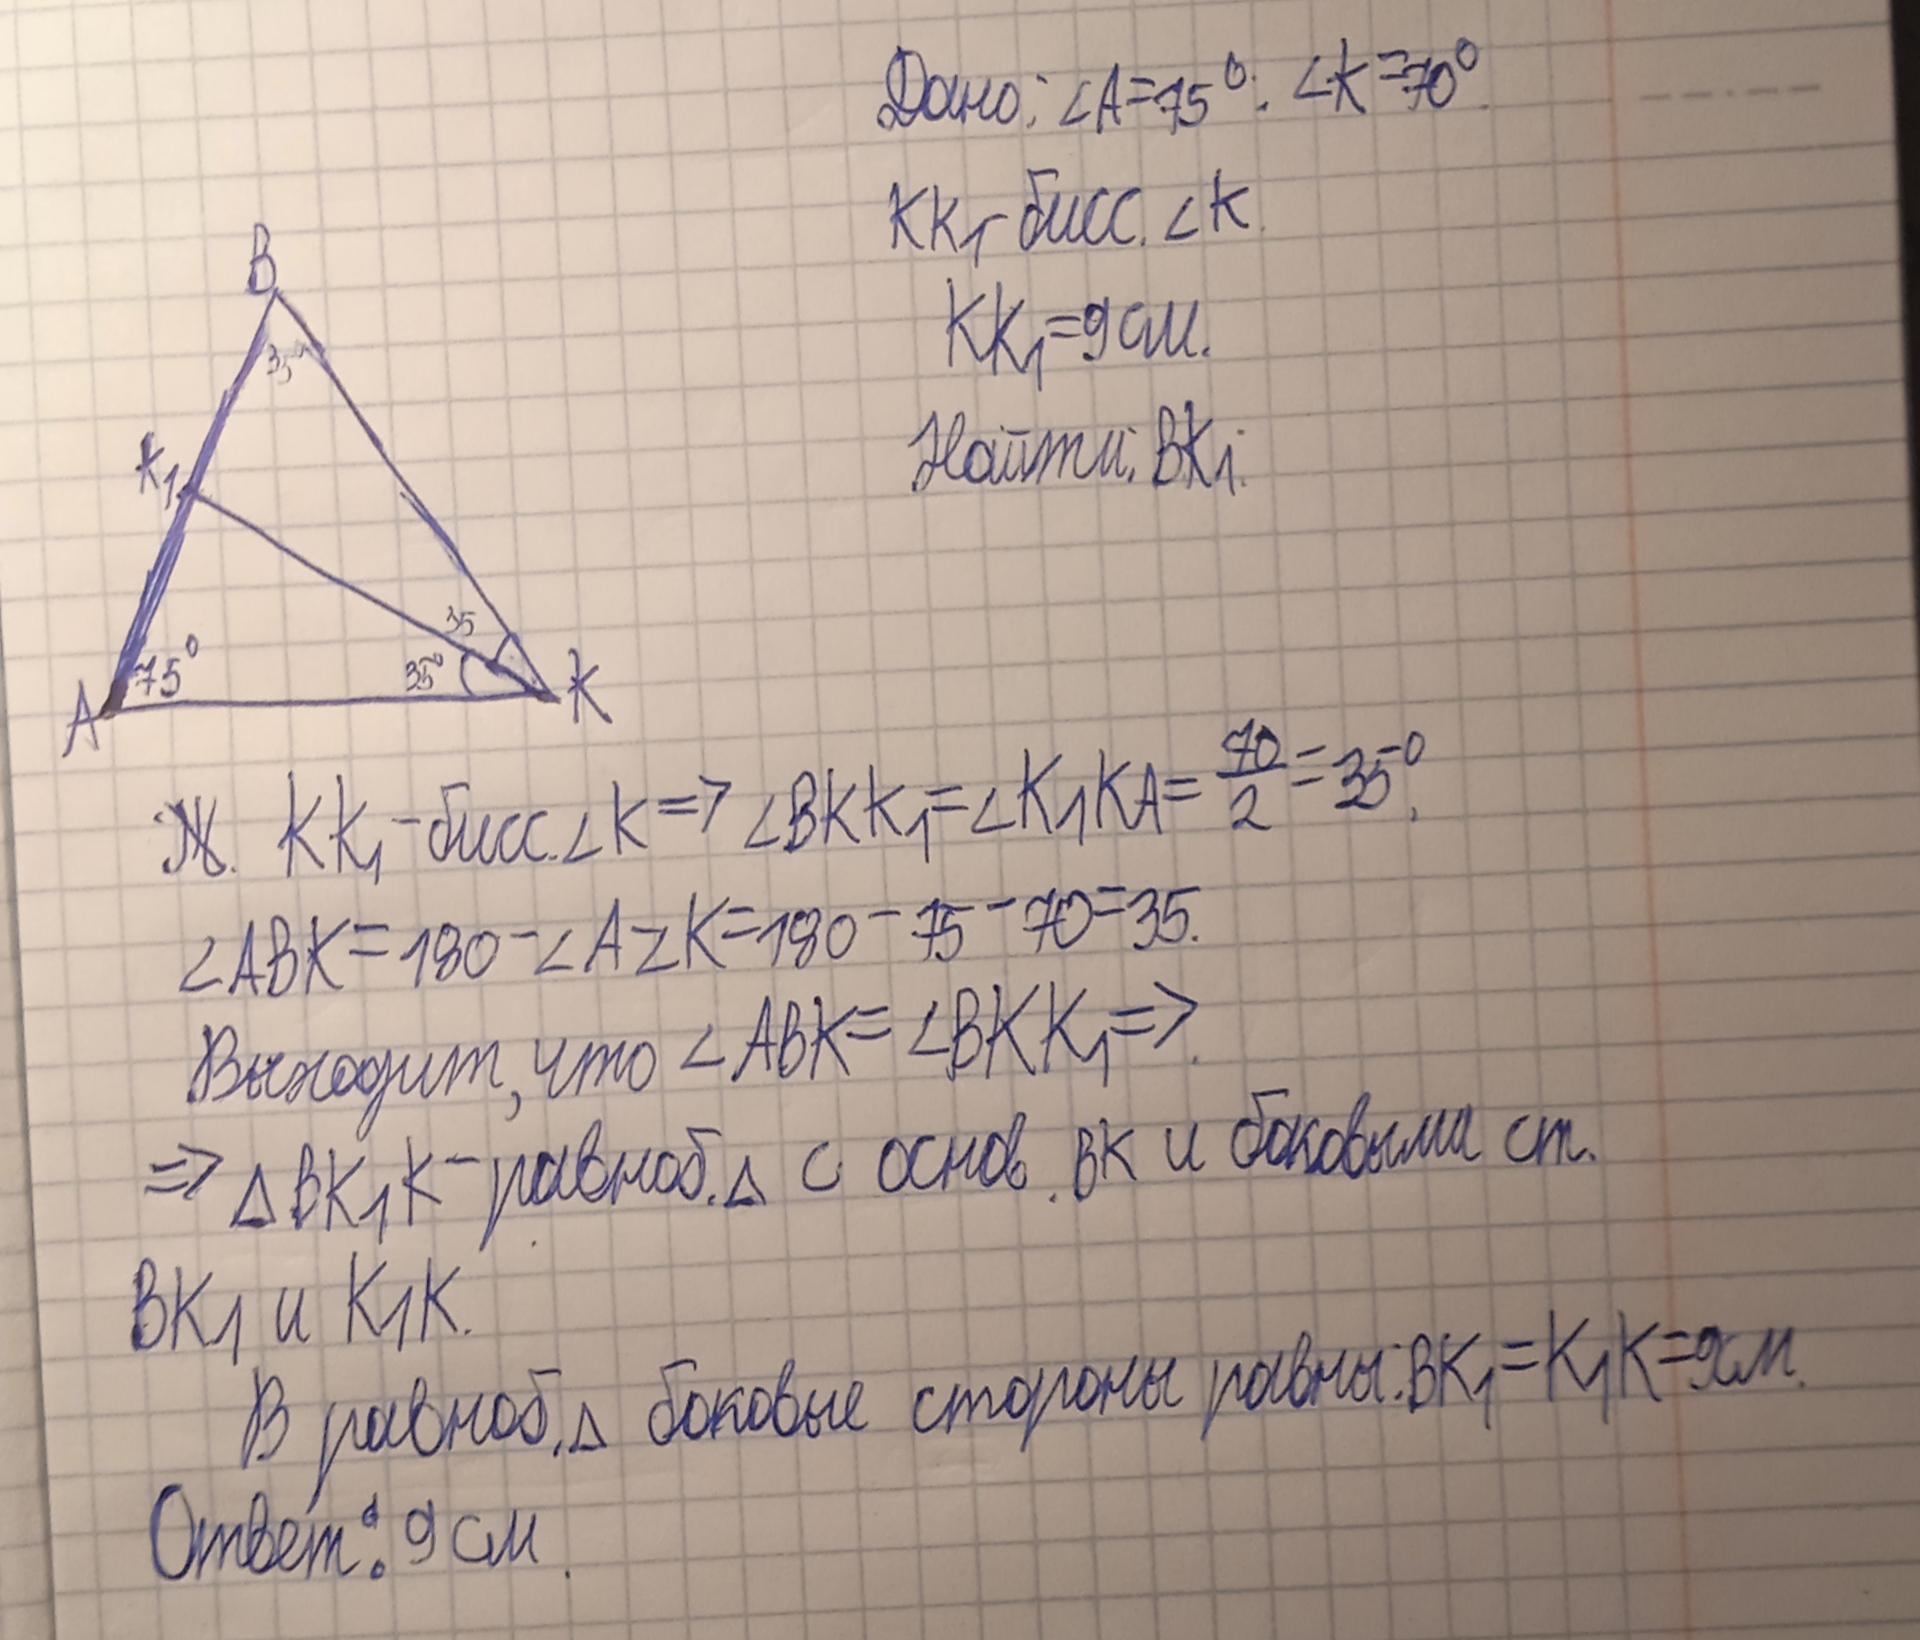 Дано: ∠A=75°. ∠K=70°
KK₁-бисс. ∠K.
KK₁=9 см.
Найти: BK₁.
B
35°
K₁
35
75°
35°
A
K
KK₁-бисс.∠K=> ∠BKK₁=∠K₁KA=70/2=35°.
∠ABK=180-∠A∠K=180-75-70=35.
Выходит, что ∠ABK=∠BKK₁=>.
=> ΔBK₁K-равноб.Δ с основ. BK и боковыми ст.
BK₁ и K₁K.
В равноб.Δ боковые стороны равны: BK₁=K₁K=9см.
Ответ: 9 см.